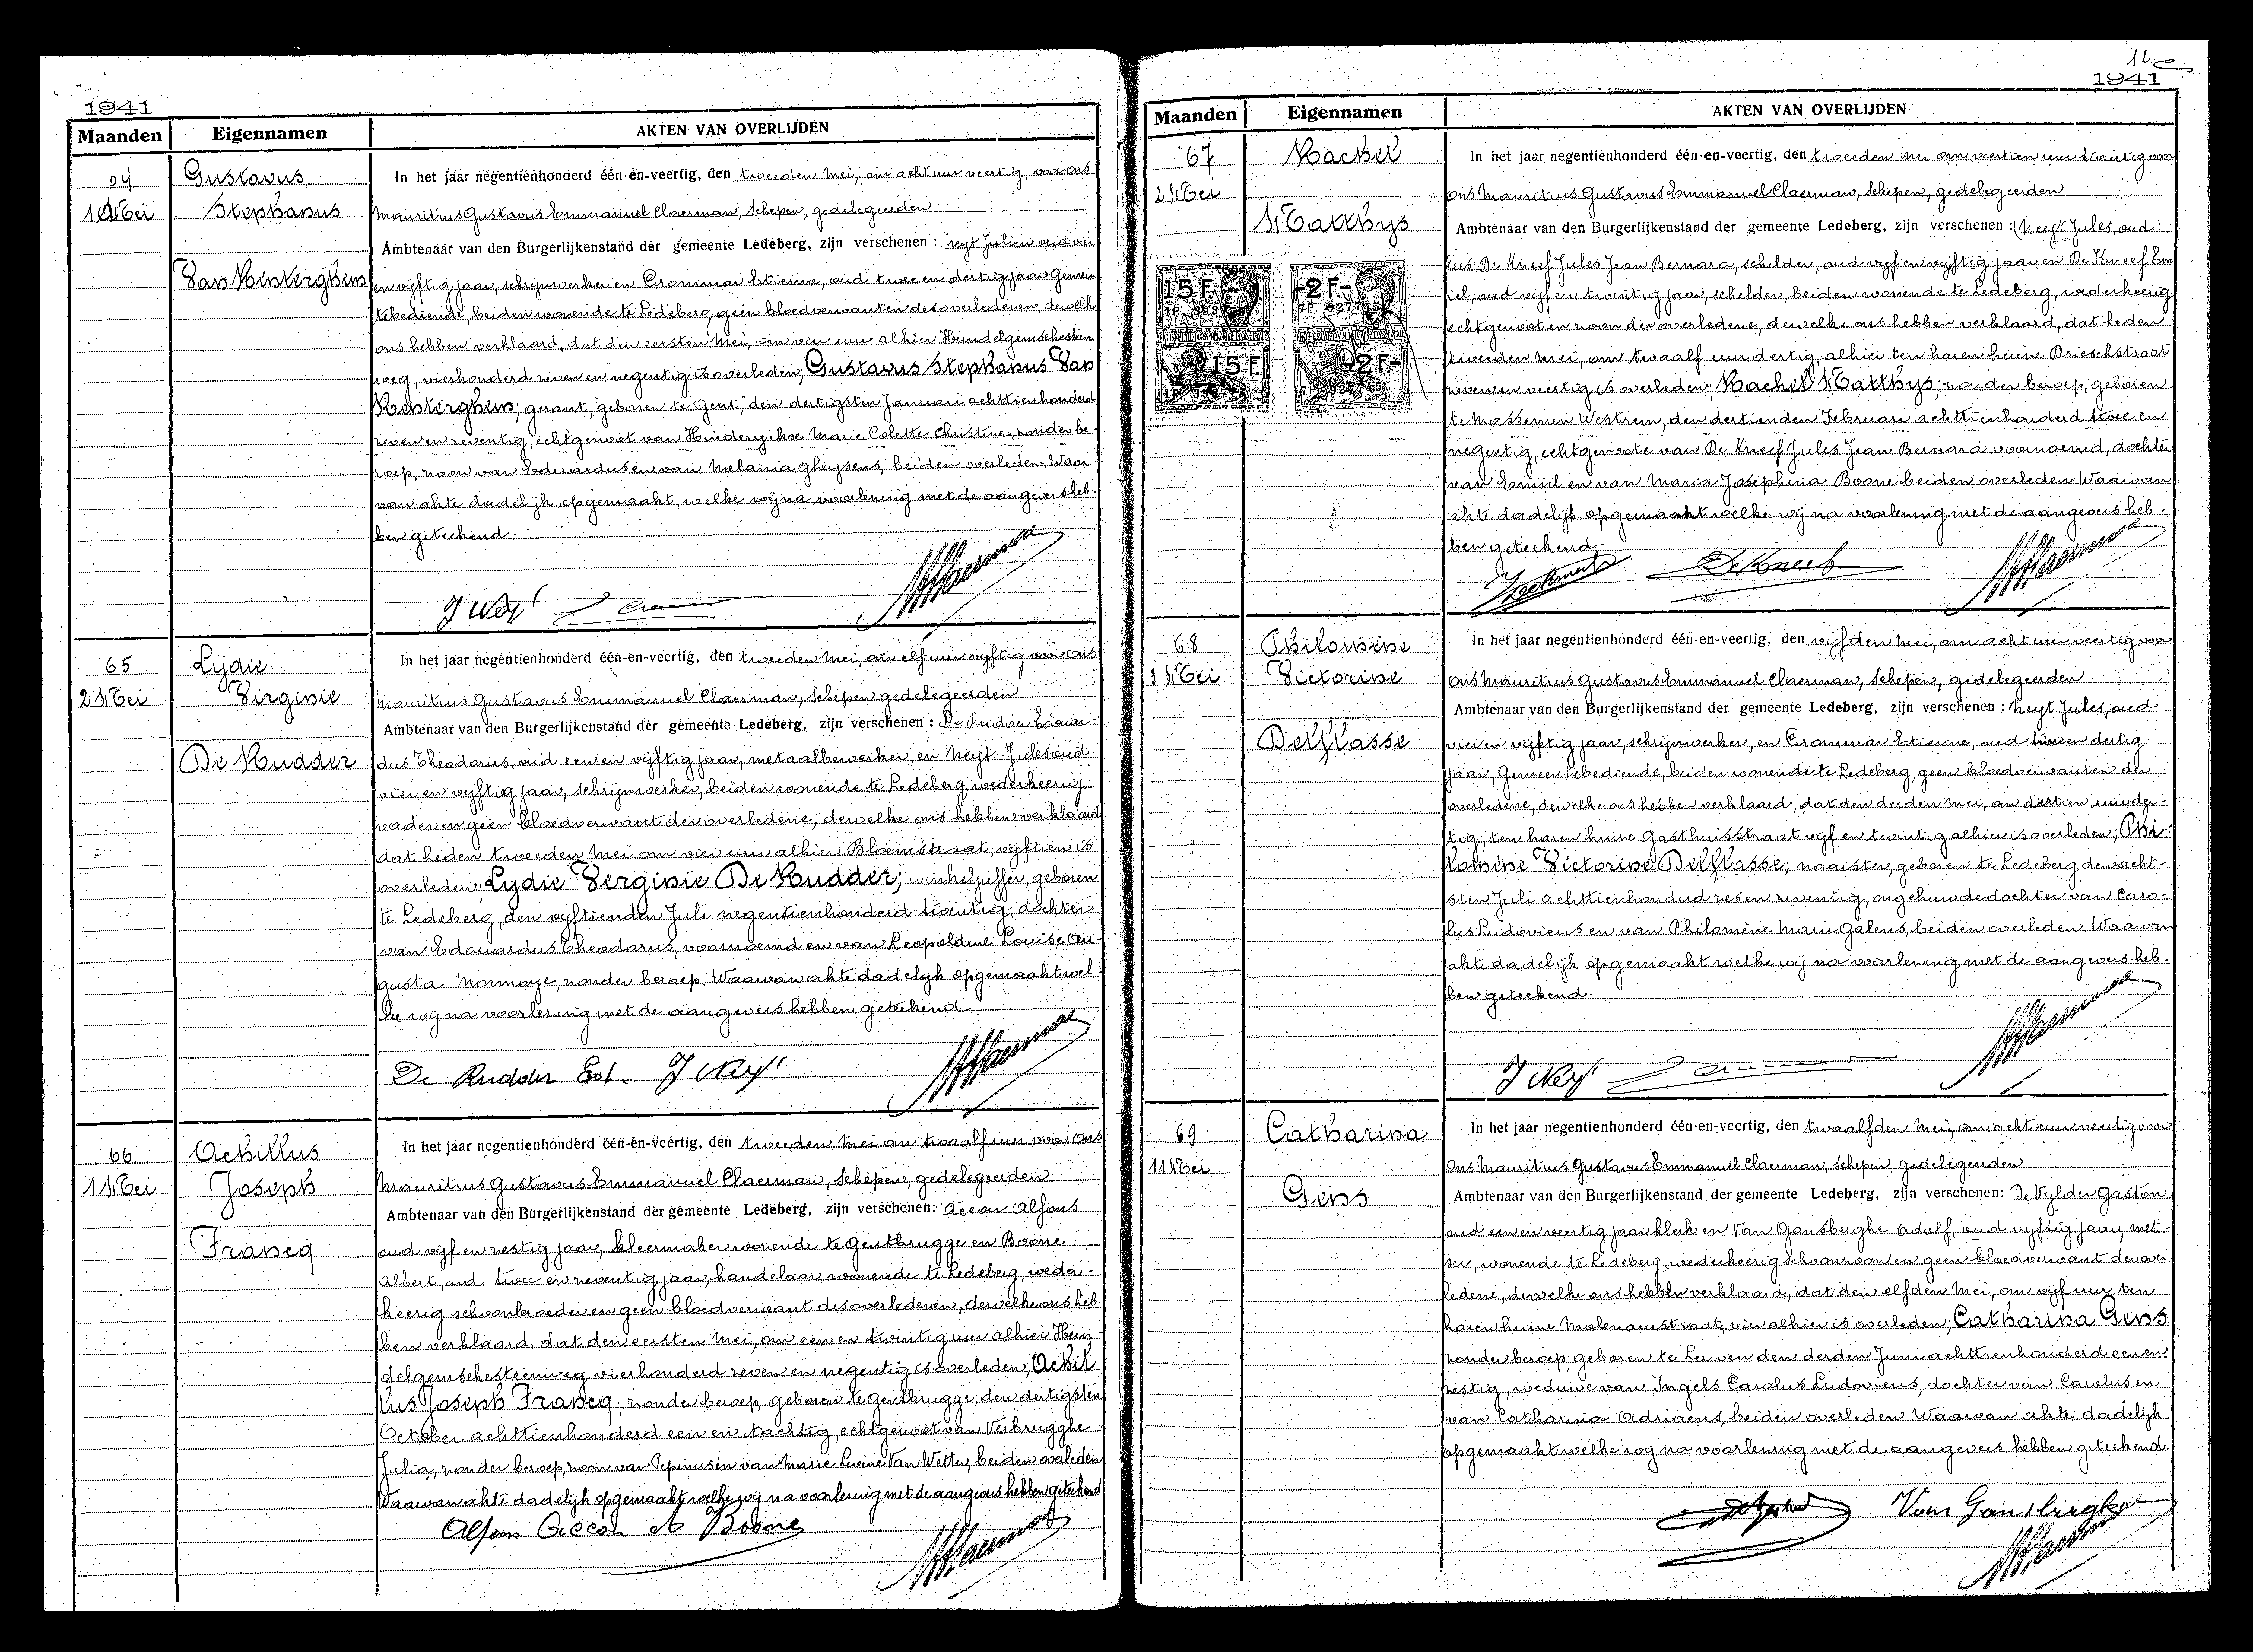 1941
Maanden Eigennamen AKTEN VAN OVERLIJDEN
64
1 Mei
Gustavus
Stephanus
Van Kesterghem
In het jaar negentienhonderd één-en-veertig, den tweeden Mei, om acht uur veertig, voor ons
Mauritius Gustavus Emmanuel Claerman, Schepen, gedelegeerden
Ambtenaar van den Burgerlijkenstand der gemeente Ledeberg, zijn verschenen: Neyt Julien oud vier
en vijftig jaar, schrijnwerker en Crommar Etienne, oud twee en dertig jaar Gemeen
tebediende, beiden wonende te Ledeberg geen bloedverwanten des overledenen, dewelke
ons hebben verklaard, dat den eersten Mei, om vier uur alhier Hundelgemschesteen
weg, vierhonderd zeven en negentig is overleden; Gustavus Stephanus Van
Kesterghem; gerant, geboren te Gent, den dertigsten Januari achttienhonderd
zeven en zeventig, echtgenoot van Hinderyckse Marie Colette Christine, zonder be-
roep, zoon van Eduardus en van Melania Gheysens, beiden overleden Waar
van akte dadelijk opgemaakt, welke wij na voorlezing met de aangevers heb-
ben geteekend.
J Neyt
65
2 Mei
Lydie
Virginie
De Rudder
In het jaar negentienhonderd één-en-veertig, den tweeden Mei, om elf uur vijftig voor ons
Mauritius Gustavus Emmanuel Claerman, Schepen gedelegeerden
Ambtenaar van den Burgerlijkenstand der gemeente Ledeberg, zijn verschenen: De Rudder Edouar-
dus Theodorus, oud een en vijftig jaar, metaalbewerker, en Neyt Jules oud
vier en vijftig jaar, schrijnwerker, beiden wonende te Ledeberg wederkeerig
vader en geen bloedverwant der overledene, dewelke ons hebben verklaard
dat heden tweeden Mei om vier uur alhier Bloemstraat, vijftien is
overleden: Lydie Virginie De Rudder; winkeljuffer, geboren
te Ledeberg, den vijftienden Juli negentienhonderd twintig, dochter
van Edouardus Theodorus, voornoemd en van Leopoldene Louise Au-
gusta Normaye, zonder beroep. Waarvan akte dadelijk opgemaakt wel-
ke wij na voorlezing met de aangevers hebben geteekend
De Rudder Ed. J Neyt
66
1 Mei
Achillus
Joseph
Francq
In het jaar negentienhonderd één-en-veertig, den tweeden Mei om twaalf uur voor ons
Mauritius Gustavus Emmanuel Claerman, Schepen, gedelegeerden
Ambtenaar van den Burgerlijkenstand der gemeente Ledeberg, zijn verschenen: Alfons
oud vijf en zestig jaar, kleermaker wonende te Gentbrugge en Boone
Albert, oud twee en zeventig jaar, handelaar wonende te Ledeberg, weder-
keerig schoonbroeder en geen bloedverwant des overledenen, dewelke ons heb
ben verklaard, dat den eersten Mei, om een en twintig uur alhier Hun-
delgemschesteenweg vierhonderd zeven en negentig is overleden; Achil
lus Joseph Francq; zonder beroep, geboren te Gentbrugge, den dertigsten
October achttienhonderd een en tachtig, echtgenoot van Verbrugghe
Julia, zonder beroep, zoon van Pepinus en van Marie Leivine Van Wetter, beiden overleden
Waarvan akte dadelijk opgemaakt welke wij na voorlezing met de aangevers hebben geteekend
Alfons A Boone
12
1941
Maanden Eigennamen AKTEN VAN OVERLIJDEN
67
2 Mei
Rachel
Matthys
15 F
-2 F-
15 F
-2 F-
In het jaar negentienhonderd één-en-veertig, den tweeden Mei om veertien uur twintig voor
ons Mauritius Gustavus Emmanuel Claerman, Schepen, gedelegeerden
Ambtenaar van den Burgerlijkenstand der gemeente Ledeberg, zijn verschenen: (Neyt Jules, oud)
lees: De Kneef Jules Jean Bernard, schilder, oud vijf en vijftig jaar en De Kneef Em
iel, oud vijf en twintig jaar, schilder, beiden wonende te Ledeberg, wederkeerig
echtgenoot en zoon der overledene, dewelke ons hebben verklaard, dat heden
tweeden Mei, om twaalf uur dertig, alhier ten haren huize Drieschstraat
zeven en veertig is overleden: Rachel Matthys; zonder beroep, geboren
te Massemen Westrem, den dertienden Februari achttienhonderd twee en
negentig, echtgenoote van De Kneef Jules Jean Bernard voornoemd, dochter
van Emiel en van Maria Josephina Boone beiden overleden. Waarvan
akte dadelijk opgemaakt welke wij na voorlezing met de aangevers heb-
ben geteekend.
De Kneef
68
3 Mei
Philomène
Victorine
Delflasse
In het jaar negentienhonderd één-en-veertig, den vijfden Mei, om acht uur veertig voor
ons Mauritius Gustavus Emmanuel Claerman, Schepen, gedelegeerden
Ambtenaar van den Burgerlijkenstand der gemeente Ledeberg, zijn verschenen: Neyt Jules, oud
vier en vijftig jaar, schrijnwerker, en Crommar Etienne, oud twee en dertig
jaar, Gemeentebediende, beiden wonende te Ledeberg, geen bloedverwanten der
overledene, dewelke ons hebben verklaard, dat den derden Mei, om dertien uur der-
tig, ten haren huize Gasthuisstraat vijf en twintig alhier is overleden; Phi-
lomène Victorine Delflasse; naaister, geboren te Ledeberg den acht-
sten Juli achttienhonderd zes en zeventig, ongehuwde dochter van Caro-
lus Ludovicus en van Philomène Marie Galens, beiden overleden Waarvan
akte dadelijk opgemaakt welke wij na voorlezing met de aangevers heb-
ben geteekend.
J Neyt
69
11 Mei
Catharina
Gens
In het jaar negentienhonderd één-en-veertig, den twaalfden Mei, om acht uur veertig voor
ons Mauritius Gustavus Emmanuel Claerman, Schepen, gedelegeerden
Ambtenaar van den Burgerlijkenstand der gemeente Ledeberg, zijn verschenen: De Vylder Gaston
oud een en veertig jaar klerk en Van Gansberghe Adolf, oud vijftig jaar, met-
ser, wonende te Ledeberg, wederkeerig schoonzoon en geen bloedverwant der over
ledene, dewelke ons hebben verklaard, dat den elfden Mei, om vijf uur ten
haren huize Molenaarstraat, vier alhier is overleden; Catharina Gens
zonder beroep, geboren te Leuven den derden Juni achttienhonderd een en
zestig, weduwe van Ingels Carolus Ludovicus, dochter van Carolus en
van Catharina Adriaens, beiden overleden Waarvan akte dadelijk
opgemaakt welke wij na voorlezing met de aangevers hebben geteekend.
Van Gansberghe